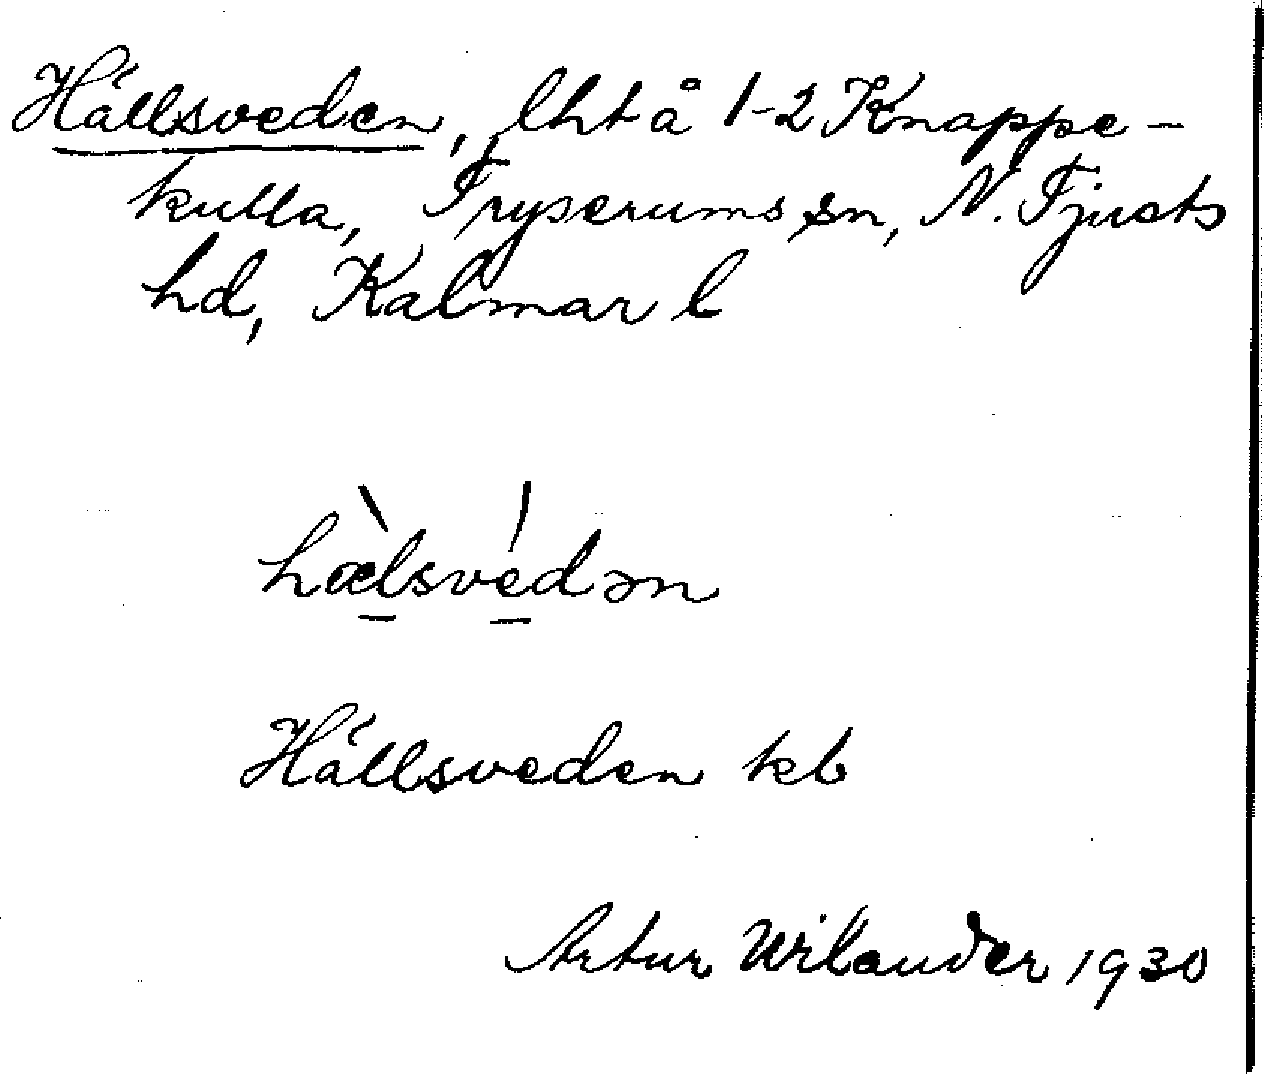 Hällsveden, lht å 1-2 Knappe-
kulla, Tryserums sn, N. Tjusts
hd, Kalmar l
hæ̀lsvédən
Hällsveden kb
Artur Wilander 1930